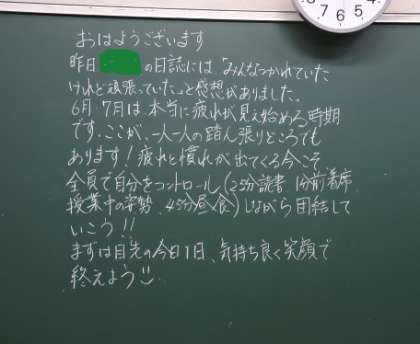 7 6 5
おはようございます
昨日 の日誌には、「みんなつかれていた
けれど頑張っていた」と感想がありました。
6月 7月は本当に疲れが見え始める時期
です。ここが、一人一人の踏ん張りどころでも
あります！疲れと慣れが出てくる今こそ
全員で自分をコントロール(25分読書 1分前着席
授業中の姿勢、45分昼食)しながら団結して
いこう!!
まずは目先の今日1日、気持ち良く笑顔で
終えよう